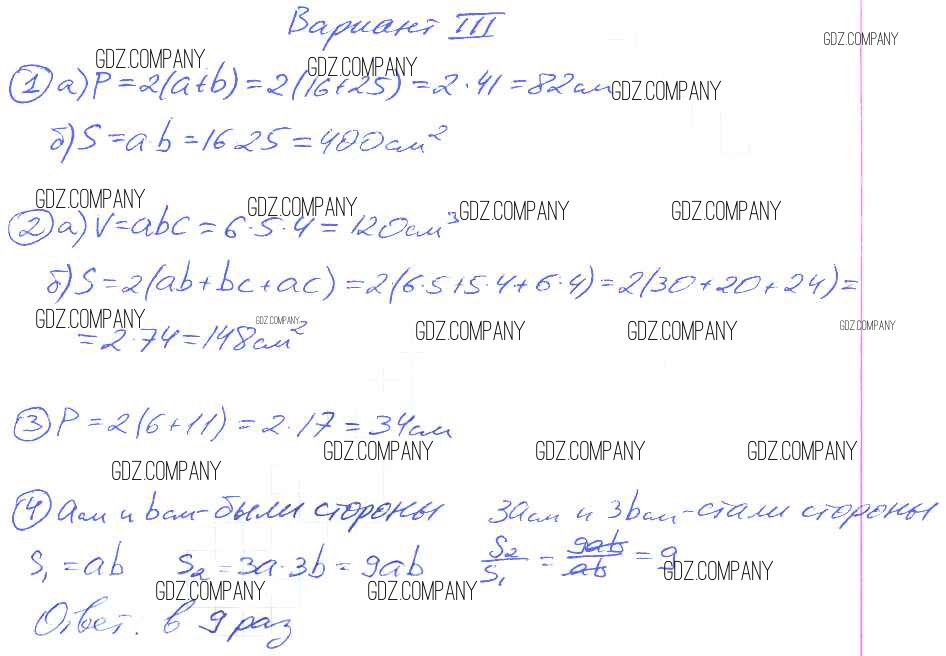 Вариант III
GDZ.COMPANY
GDZ.COMPANY GDZ.COMPANY
1 а) P = 2(a+b) = 2(16+25) = 2·41 = 82 см GDZ.COMPANY
б) S = a·b = 16 25 = 400 см²
GDZ.COMPANY GDZ.COMPANY GDZ.COMPANY GDZ.COMPANY
2 а) V = abc = 6·5·4 = 120 см³
б) S = 2(ab+bc+ac) = 2(6·5+5·4+6·4) = 2(30+20+24) =
GDZ.COMPANY GDZ.COMPANY GDZ.COMPANY GDZ.COMPANY GDZ.COMPANY
= 2·74 = 148 см²
3 P = 2(6+11) = 2·17 = 34 см
GDZ.COMPANY GDZ.COMPANY GDZ.COMPANY GDZ.COMPANY
4 a см и b см - были стороны 3a см и 3b см - стали стороны
S₁ = ab S₂ = 3a·3b = 9ab S₂/S₁ = 9ab/ab = 9
GDZ.COMPANY GDZ.COMPANY GDZ.COMPANY
Ответ: в 9 раз